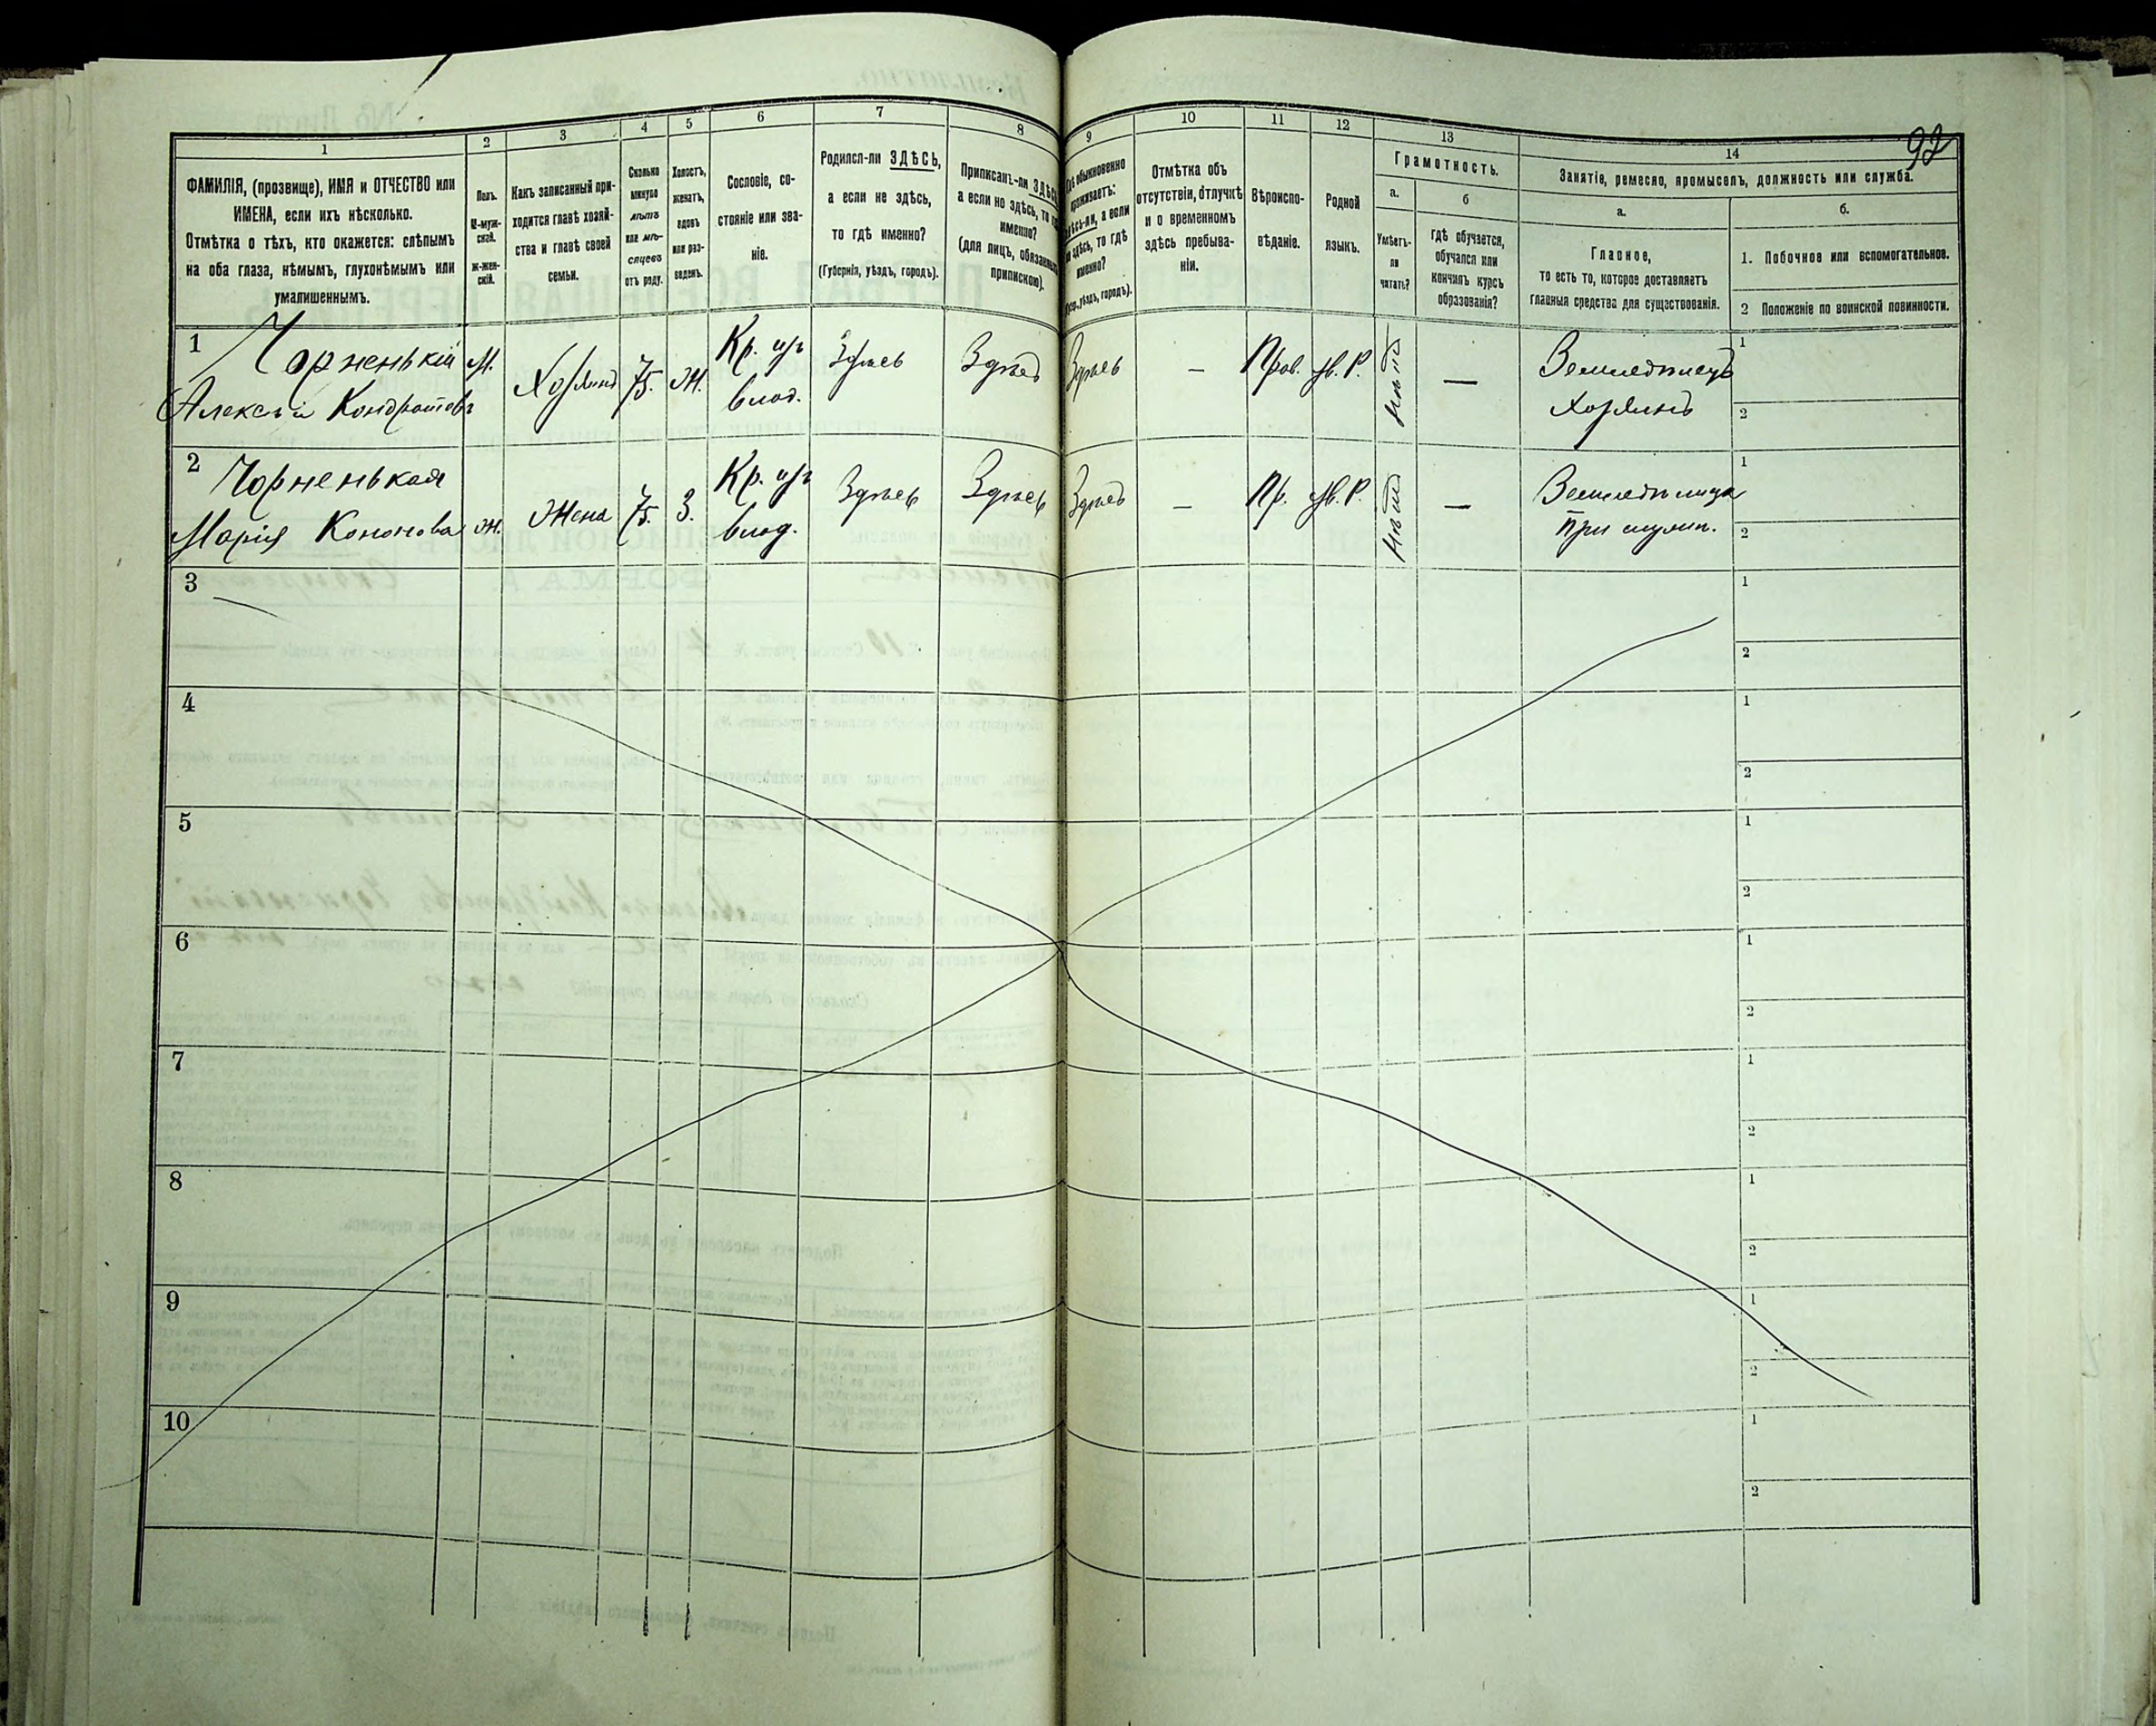 92
1
ФАМИЛІЯ, (прозвище), ИМЯ и ОТЧЕСТВО или
ИМЕНА, если ихъ нѣсколько.
Отмѣтка о тѣхъ, кто окажется: слѣпымъ
на оба глаза, нѣмымъ, глухонѣмымъ или
умалишеннымъ.
2
Полъ.
М-муж-
ской.
Ж-жен-
скій.
3
Какъ записанный при-
ходится главѣ хозяй-
ства и главѣ своей
семьи.
4
Сколько
минуло
лѣтъ
или мѣ-
сяцевъ
отъ роду.
5
Холостъ,
женатъ,
вдовъ
или раз-
веденъ.
6
Сословіе, со-
стояніе или зва-
ніе.
7
Родился-ли ЗДѢСЬ,
а если не здѣсь,
то гдѣ именно?
(Губернія, уѣздъ, городъ).
8
Приписанъ-ли ЗДѢСЬ,
а если не здѣсь, то гдѣ
именно?
(для лицъ, обязанныхъ
припискою).
9
обыкновенно
проживаетъ:
здѣсь-ли, а если
не здѣсь, то гдѣ
именно?
уѣздъ, городъ).
10
Отмѣтка объ
отсутствіи, отлучкѣ
и о временномъ
здѣсь пребыва-
ніи.
11
Вѣроиспо-
вѣданіе.
12
Родной
языкъ.
13
Грамотность.
а.
Умѣетъ-
ли
читать?
б
гдѣ обучается,
обучался или
кончилъ курсъ
образованія?
14
Занятіе, ремесло, промыселъ, должность или служба.
а.
Главное,
то есть то, которое доставляетъ
главныя средства для существованія.
б.
1. Побочное или вспомогательное.
2 Положеніе по воинской повинности.
1 Чорненькій М. Хозяинъ 75. Ж. Кр. изъ Здѣсь Здѣсь Здѣсь — Прав. Нѣтъ — Земледѣлецъ 1
Алексѣй Кондратовъ влад. Хозяинъ 2
2 Чорненькая ж. Жена 75. З. Кр. изъ Здѣсь Здѣсь Здѣсь — Пр. Нѣтъ — 1
Марія Кононова влад. 2
3 1
2
4 1
2
5 1
2
6 1
2
7 1
2
8 1
2
9 1
2
10 1
2